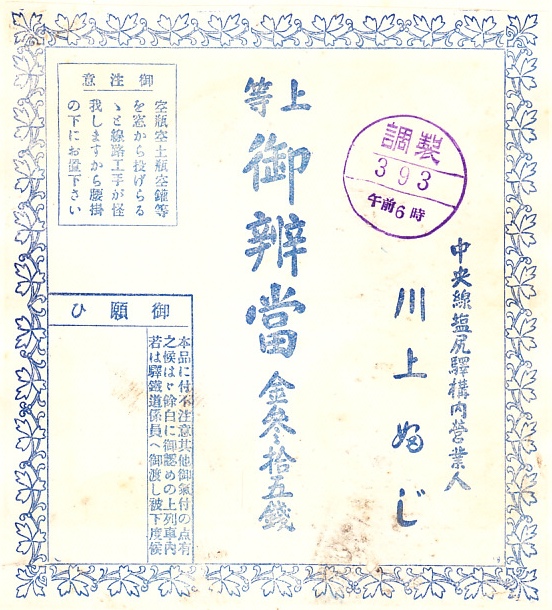 調製
393
午前6時
中央線塩尻驛構内營業人
川上婦じ
上等
御辨當
金參拾五錢
御注意
空瓶空土瓶空鑵等
を窓から投げらる
ゝと線路工手が怪
我しますから腰掛
の下にお置下さい
御願ひ
本品に付不注意其他御氣付の点有
之候はゞ餘白に御認めの上列車内
若は驛鐵道係員へ御渡し被下度候